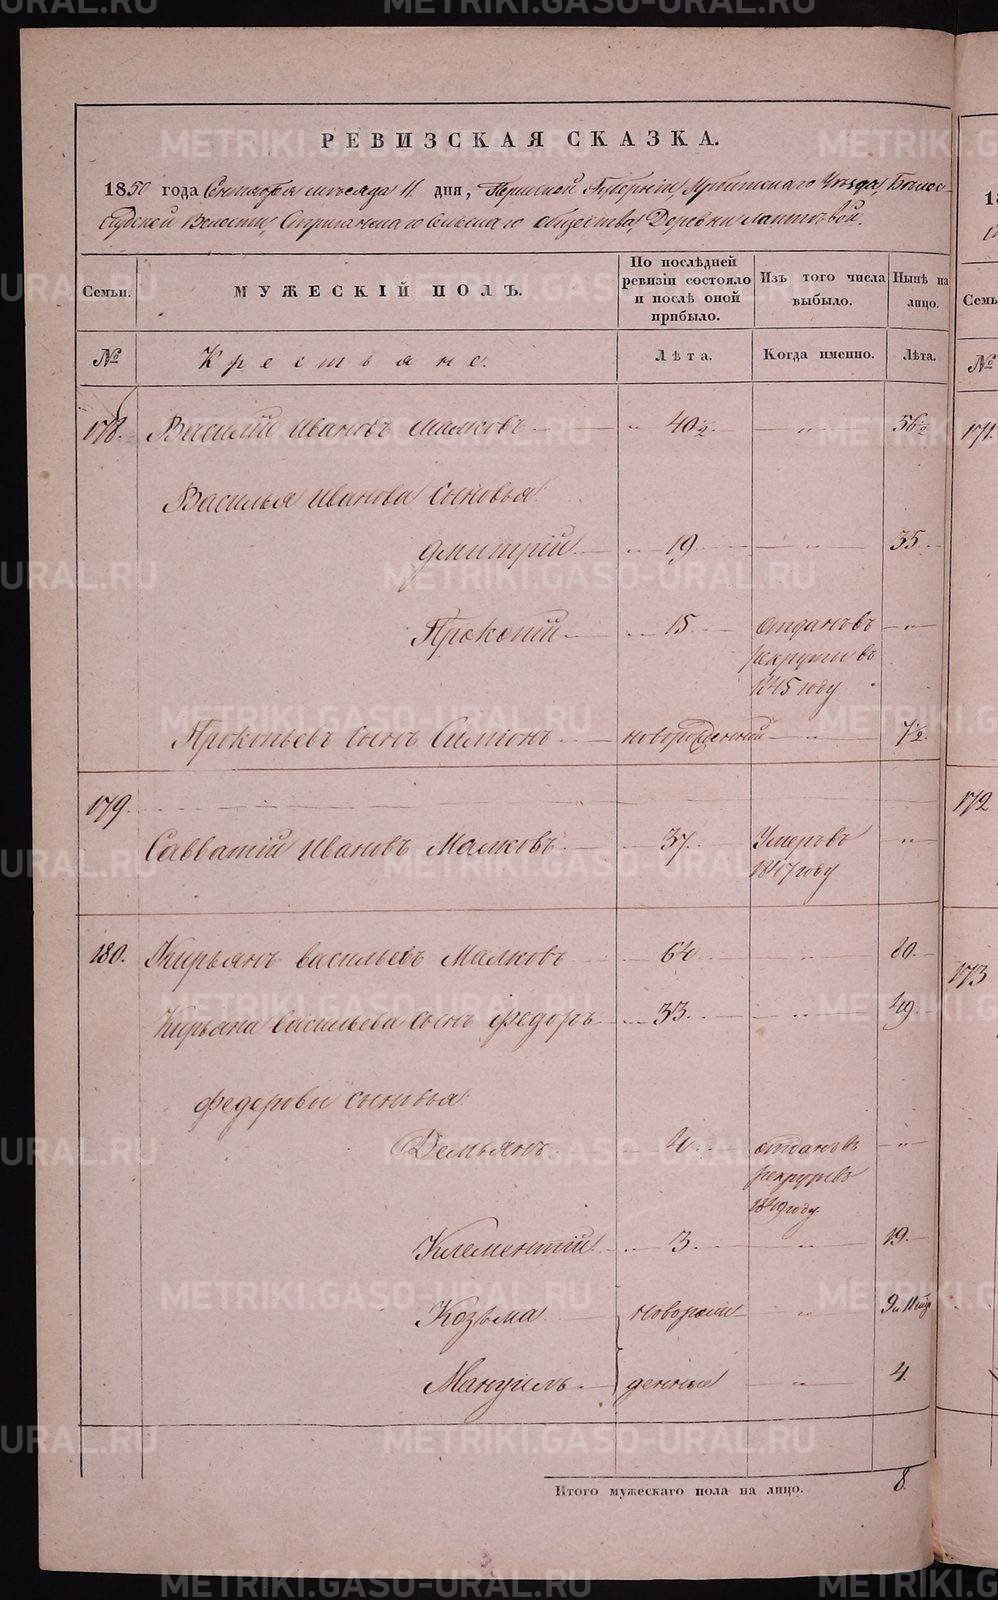 РЕВИЗСКАЯ СКАЗКА.
1850 года Сентября месяца 11 дня, Пермской Губернии, Ирбитскаго Уѣзда,
Волости, сельскаго общества, Деревни Лаптевой.
Семьи. МУЖЕСКІЙ ПОЛЪ. По послѣдней ревизіи состояло и послѣ оной прибыло. Изъ того числа выбыло. Нынѣ на лицо.
№ Крестьяне. Лѣта. Когда именно. Лѣта.
178. Василій Ивановъ Малковъ 40½ 56½
Василья Иванова сыновья:
Дмитрій 19 35
Прокопій 15 отданъ въ
рекруты въ
1845 году
Прокопьевъ сынъ Симіонъ новорожденный 7½
179.
Савватій Ивановъ Малковъ 37 Умеръ въ
1847 году
180. Кирьянъ Васильевъ Малковъ 64 80
Кирьяна Васильева сынъ Федоръ 33 49
Федоровы сыновья:
Демьянъ 4 отданъ въ
рекруты въ
1849 году.
Клементій 3 19
Козьма новорож- 9 и 11 мѣс
Мануилъ денные 4
Итого мужескаго пола на лицо. 8
171.
172
173
№
METRIKI.GASO-URAL.RU